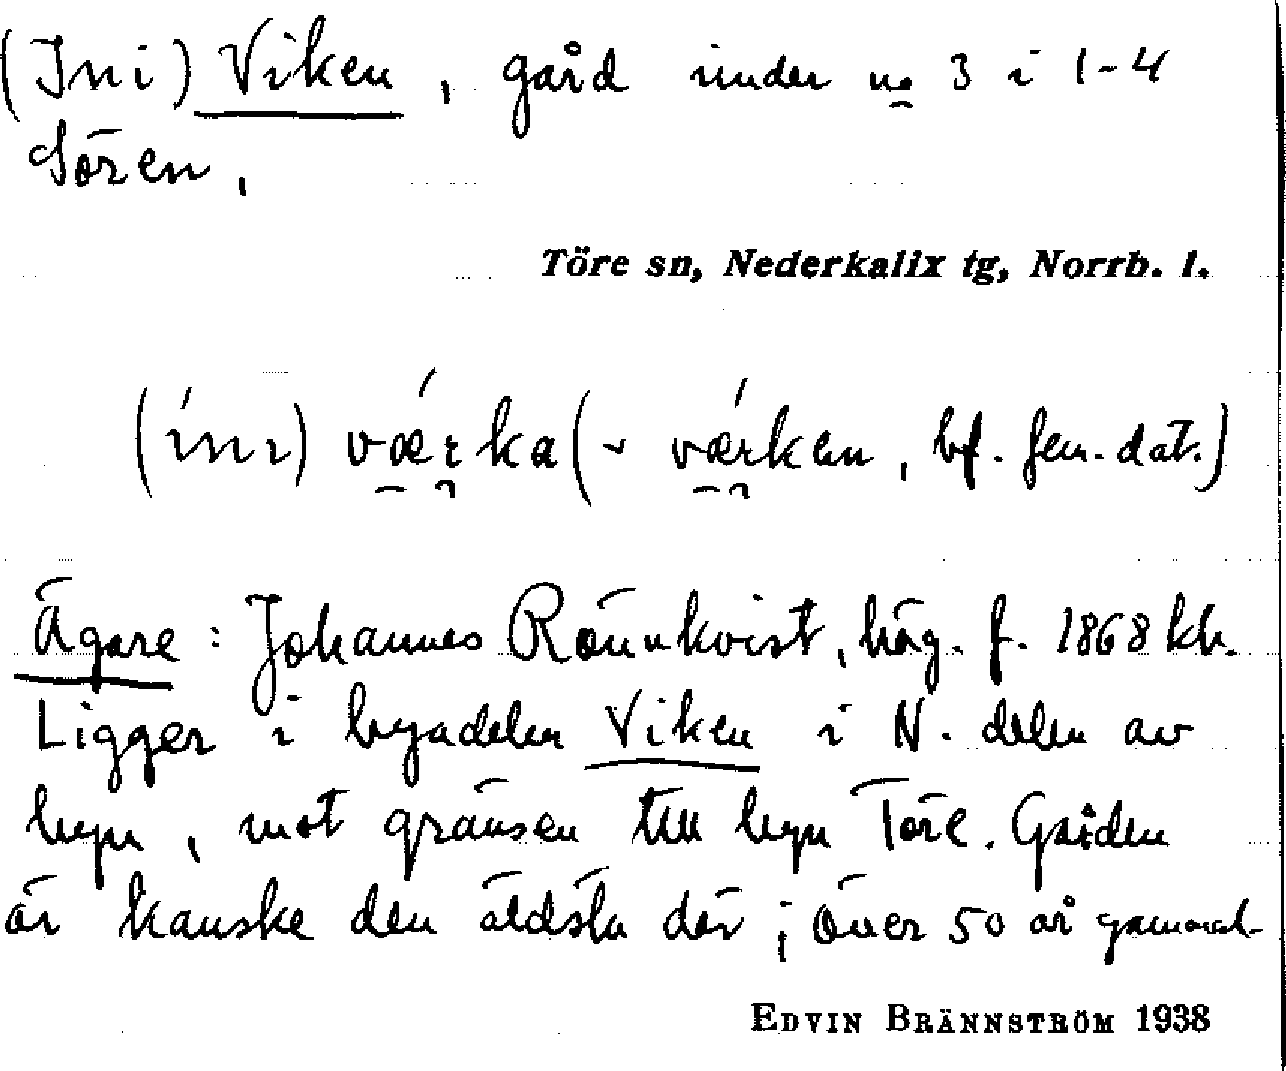 (Ini) Viken, gård under no 3 i 1-4
Sören,
Töre sn, Nederkalix tg, Norrb. l.
(ínı) vǽrka (~ vǽrken, bf. fem. dat.)
Ägare: Johannes Rönnkvist, häg. f. 1868 kh.
Ligger i byadelen Viken i N. delen av
byn, mot gränsen till byn Töre. Gården
är kanske den äldsta där; över 50 år gammal
EDVIN BRÄNNSTRÖM 1938